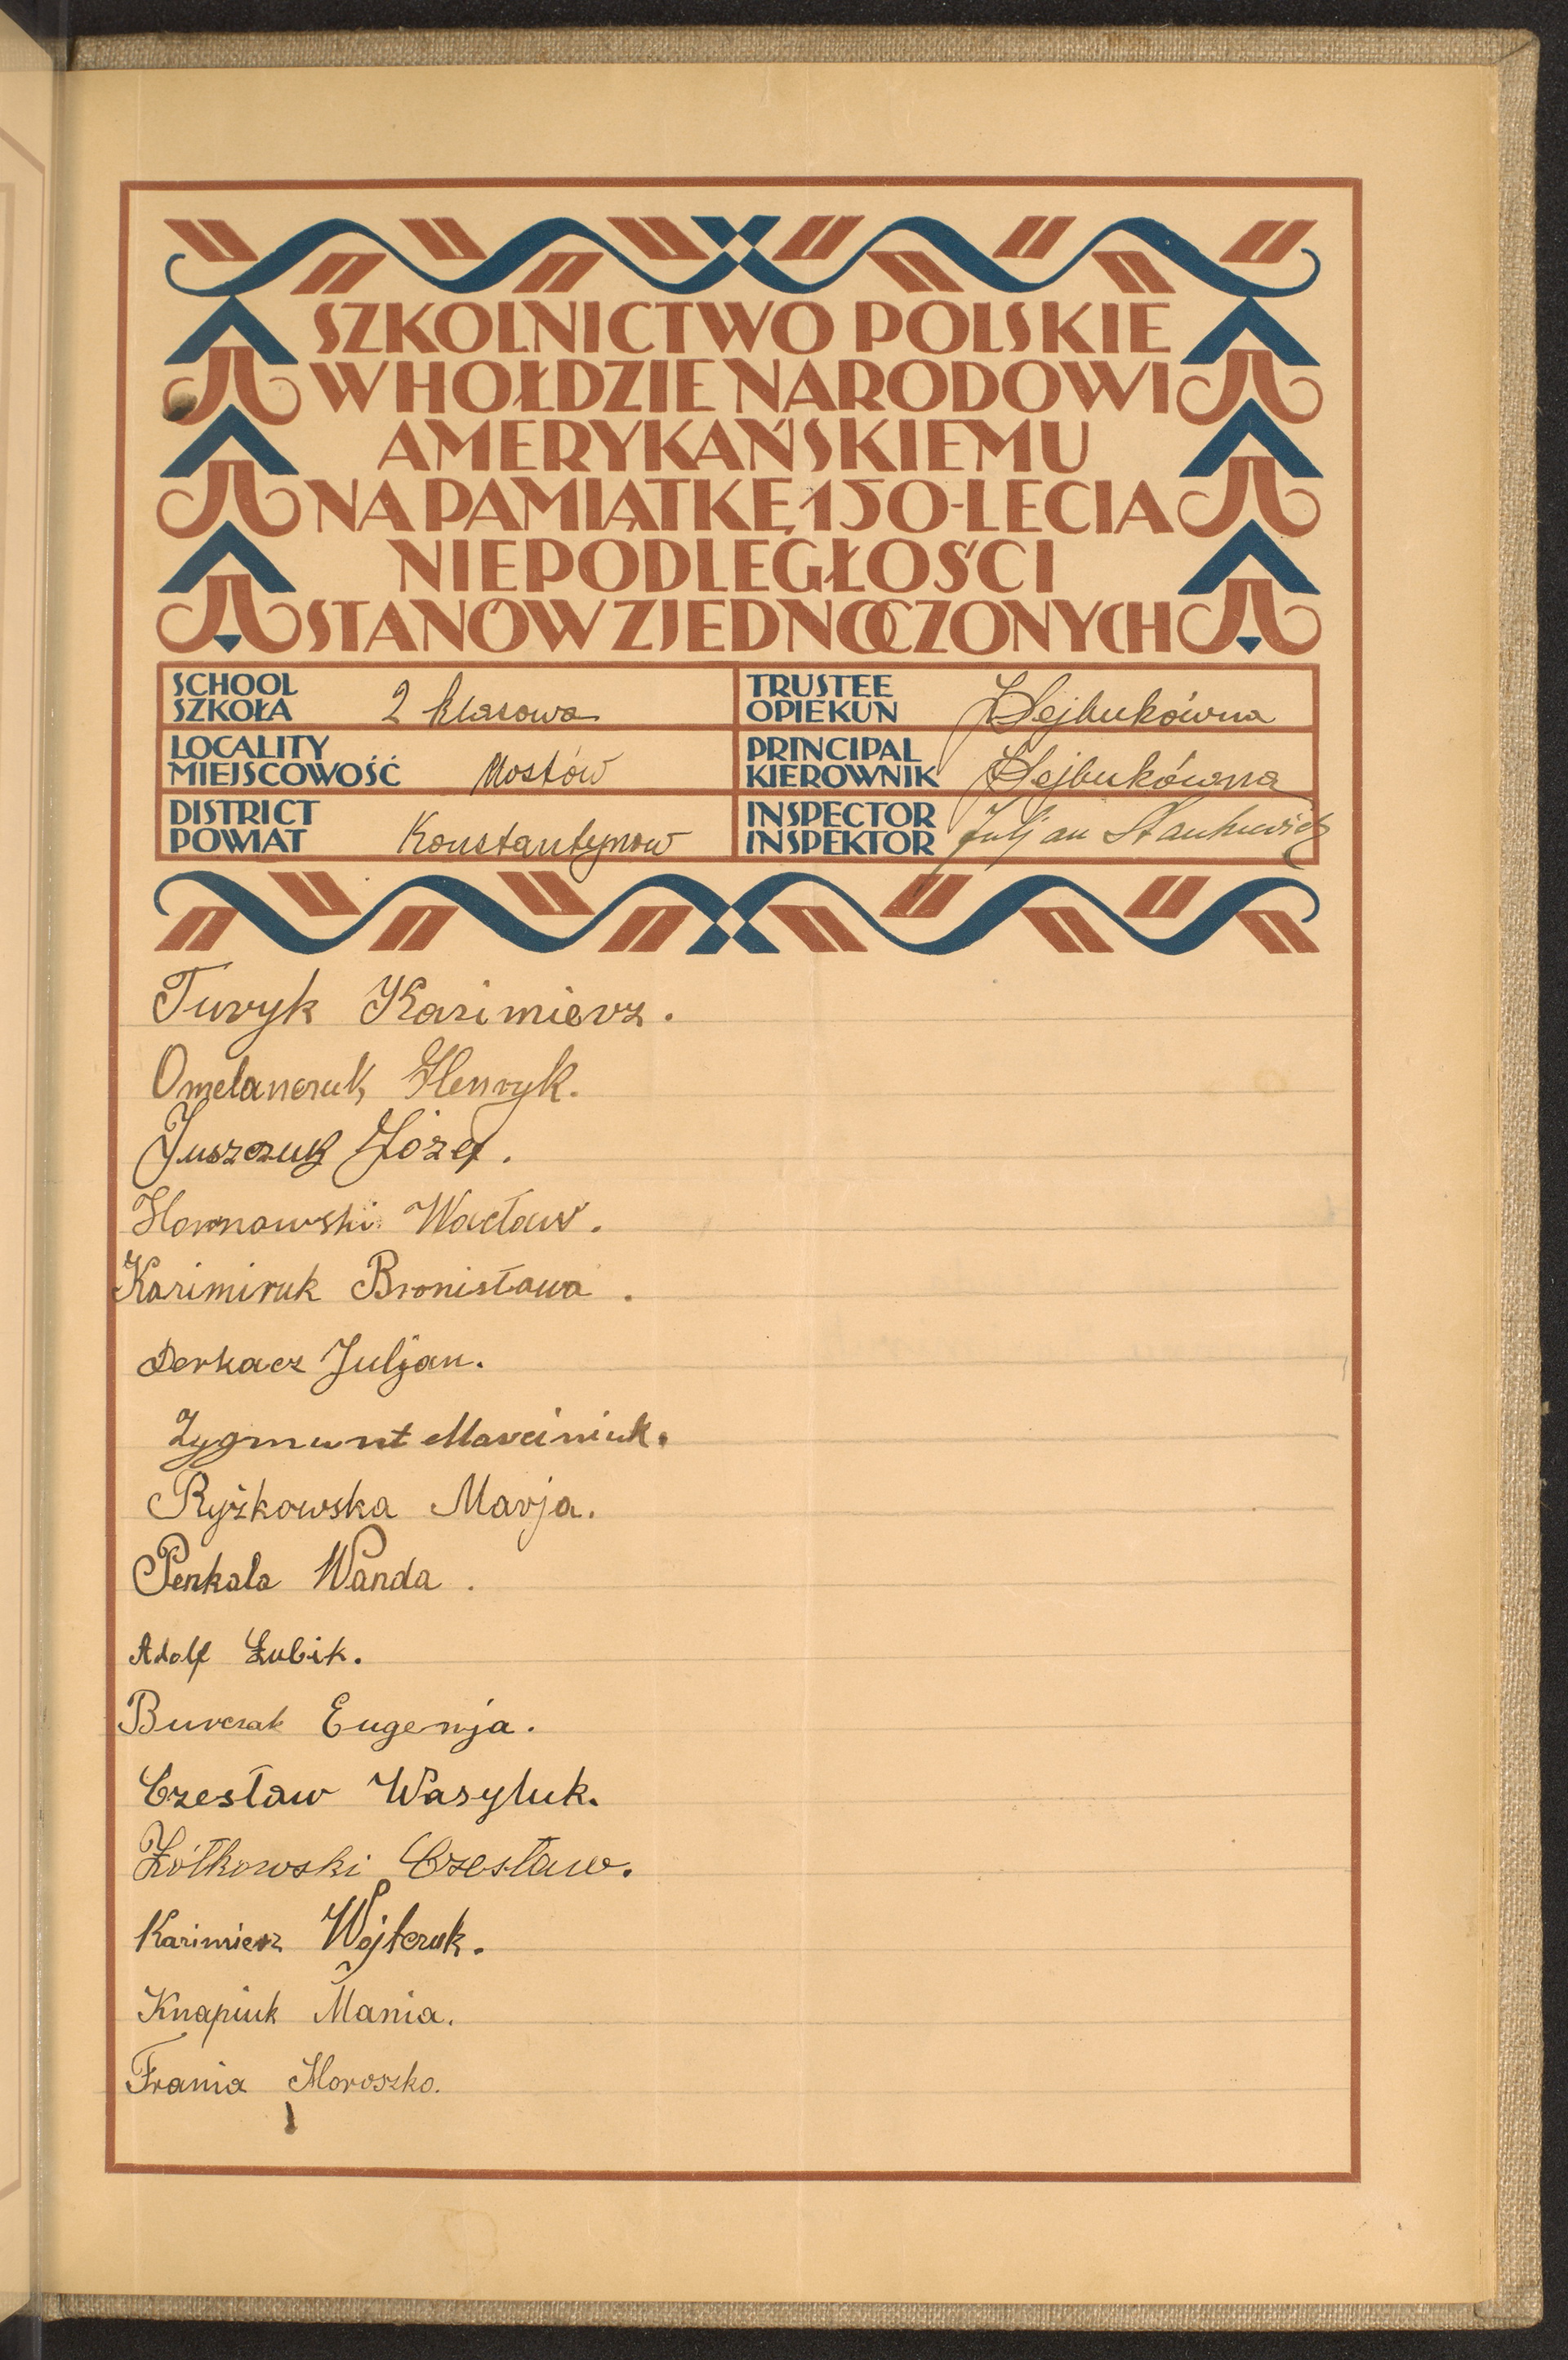 SZKOLNICTWO POLSKIE
W HOŁDZIE NARODOWI
AMERYKAŃSKIEMU
NA PAMIĄTKĘ 150-LECIA
NIEPODLEGŁOŚCI
STANÓW ZJEDNOCZONYCH
SCHOOL
SZKOŁA 2 klasowa
TRUSTEE
OPIEKUN
LOCALITY
MIEJSCOWOŚĆ Mostów
PRINCIPAL
KIEROWNIK
DISTRICT
POWIAT Konstantynow
INSPECTOR
INSPEKTOR Juljan Stankiewicz
Turyk Kazimierz.
Omelanczuk Henryk.
Juszczuk Józef.
Hornowski Wacław.
Kazimiruk Bronisława.
Derkacz Juljan.
Zygmunt Marciniuk.
Ryżkowska Marja.
Penkala Wanda.
Adolf Łubik.
Burczak Eugenja.
Czesław Wasyluk.
Żółkowski Czesław.
Kazimierz Wójtczuk.
Knapiuk Mania.
Frania Moroszko.